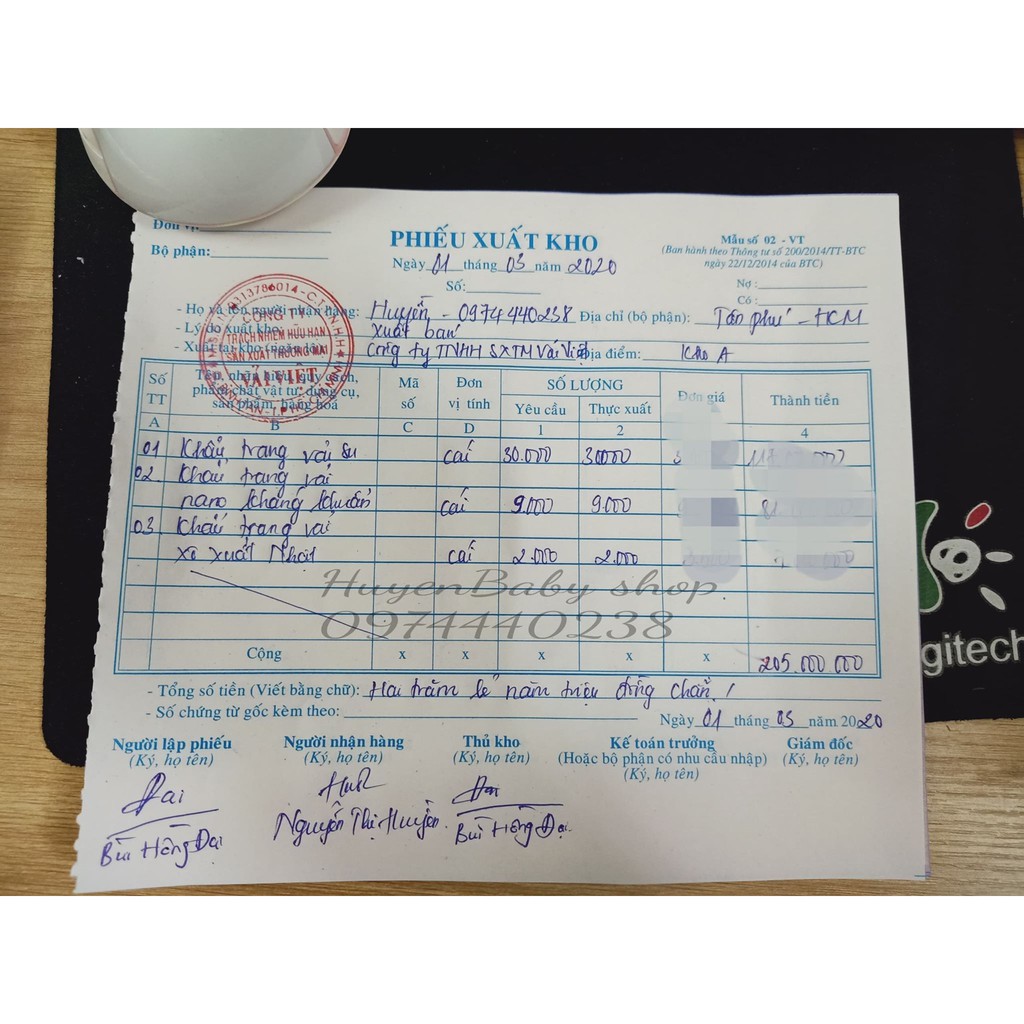 Đơn vị:
Bộ phận:
PHIẾU XUẤT KHO
Ngày 01 tháng 03 năm 2020
Số:
Mẫu số 02 - VT
(Ban hành theo Thông tư số 200/2014/TT-BTC
ngày 22/12/2014 của BTC)
Nợ :
Có :
- Họ và tên người nhận hàng: Huyền - 0974440238 Địa chỉ (bộ phận): Tân phú - HCM
- Lý do xuất kho: xuất bán
- Xuất tại kho (ngăn lô): Công ty TNHH SXTM Vải Việt Địa điểm: Kho A
0313786014 - C.T.T.N.H.H
CÔNG TY
TRÁCH NHIỆM HỮU HẠN
SẢN XUẤT THƯƠNG MẠI
VẢI VIỆT
Số TT
Tên, nhãn hiệu, quy cách, phẩm chất vật tư, dụng cụ, sản phẩm, hàng hoá
Mã số
Đơn vị tính
SỐ LƯỢNG
Yêu cầu
Thực xuất
Đơn giá
Thành tiền
A B C D 1 2 4
01 Khẩu trang vải su cái 30.000 30000
02 Khẩu trang vải
nano kháng khuẩn cái 9.000 9.000
03 Khẩu trang vải
xô xuất Nhật cái 2.000 2.000
HuyenBaby shop
0974440238
Cộng x x x x x 205.000 000
- Tổng số tiền (Viết bằng chữ): Hai trăm lẻ năm triệu đồng chẵn./
- Số chứng từ gốc kèm theo:
Ngày 01 tháng 03 năm 2020
Người lập phiếu
(Ký, họ tên)
Người nhận hàng
(Ký, họ tên)
Thủ kho
(Ký, họ tên)
Kế toán trưởng
(Hoặc bộ phận có nhu cầu nhập)
(Ký, họ tên)
Giám đốc
(Ký, họ tên)
Đại
Bùi Hồng Đại
Nguyễn Thị Huyền
Bùi Hồng Đại
gitech